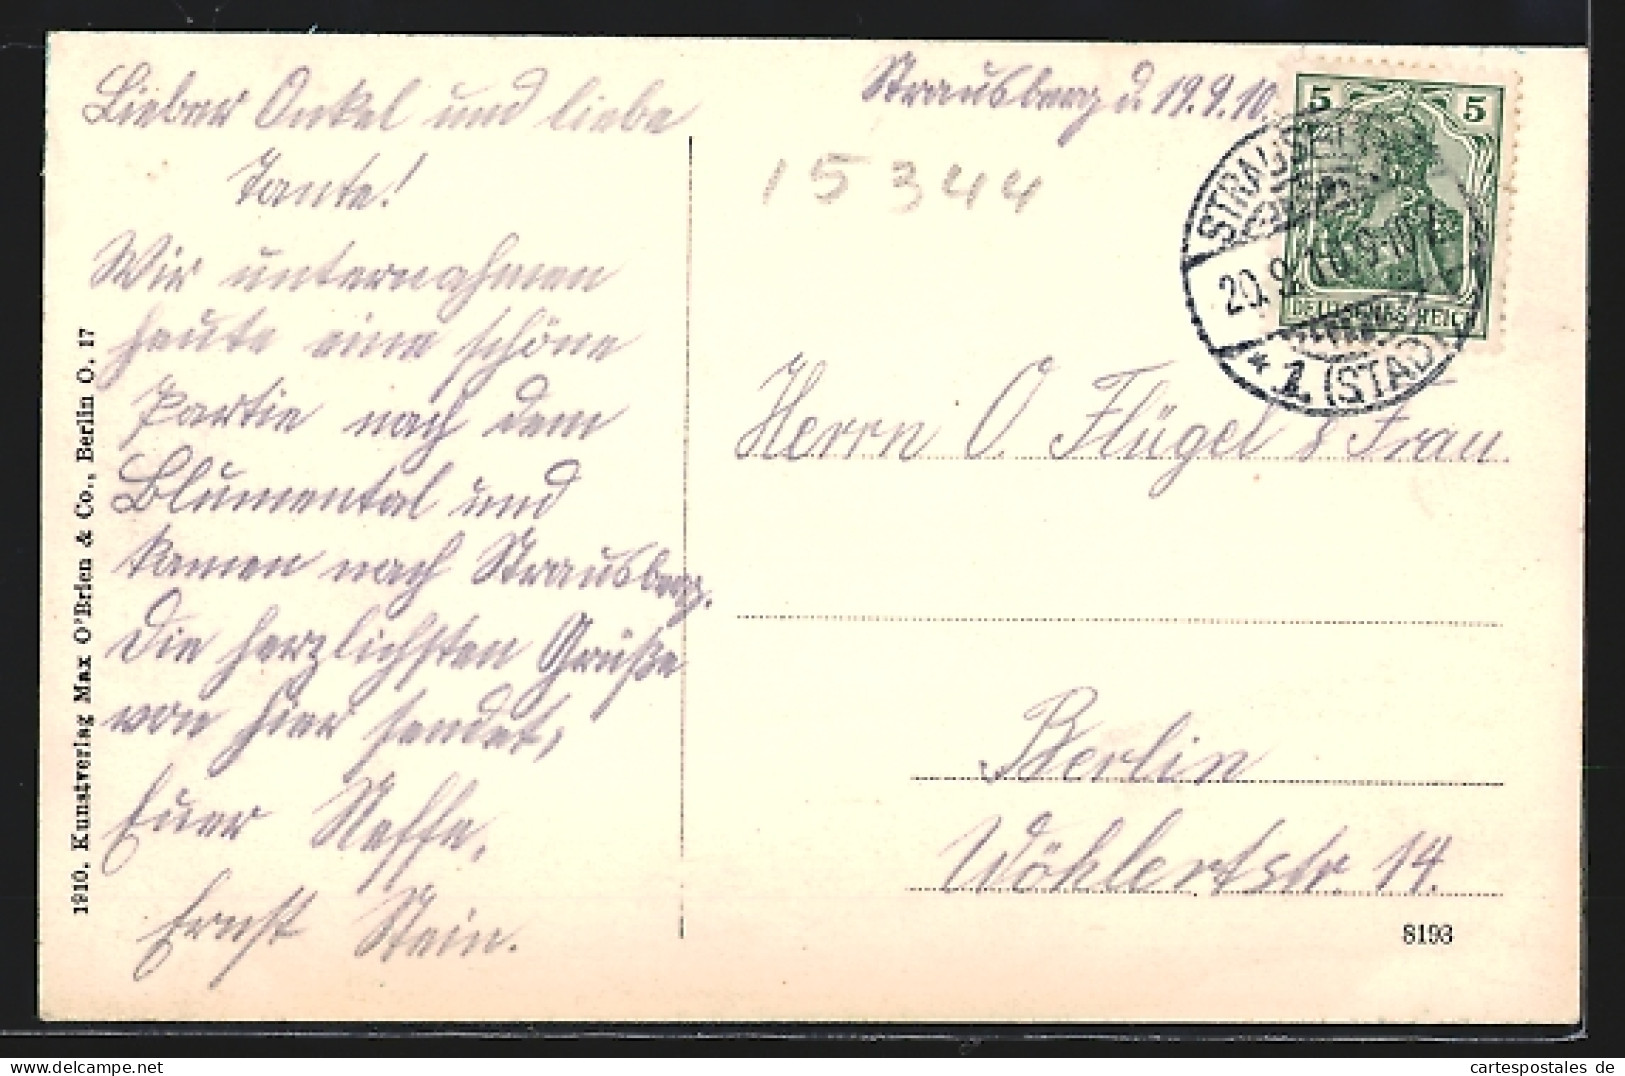 Strausberg d. 19.9.10.
Lieber Onkel und liebe
Tante!
Wir unternahmen
heute eine schöne
Partie nach dem
Blumental und
kamen nach Strausberg.
Die herzlichsten Grüße
von hier sendet,
Euer Neffe,
Ernst Stein.
1910. Kunstverlag Max O'Brien & Co., Berlin O. 17
15344
5 5
DEUTSCHES REICH
STRAUSBERG
20.9.10.9-10V.
* 1. (STADT)
Herrn O. Flügel & Frau
Berlin
Wöhlertstr. 14.
8193
cartespostales de